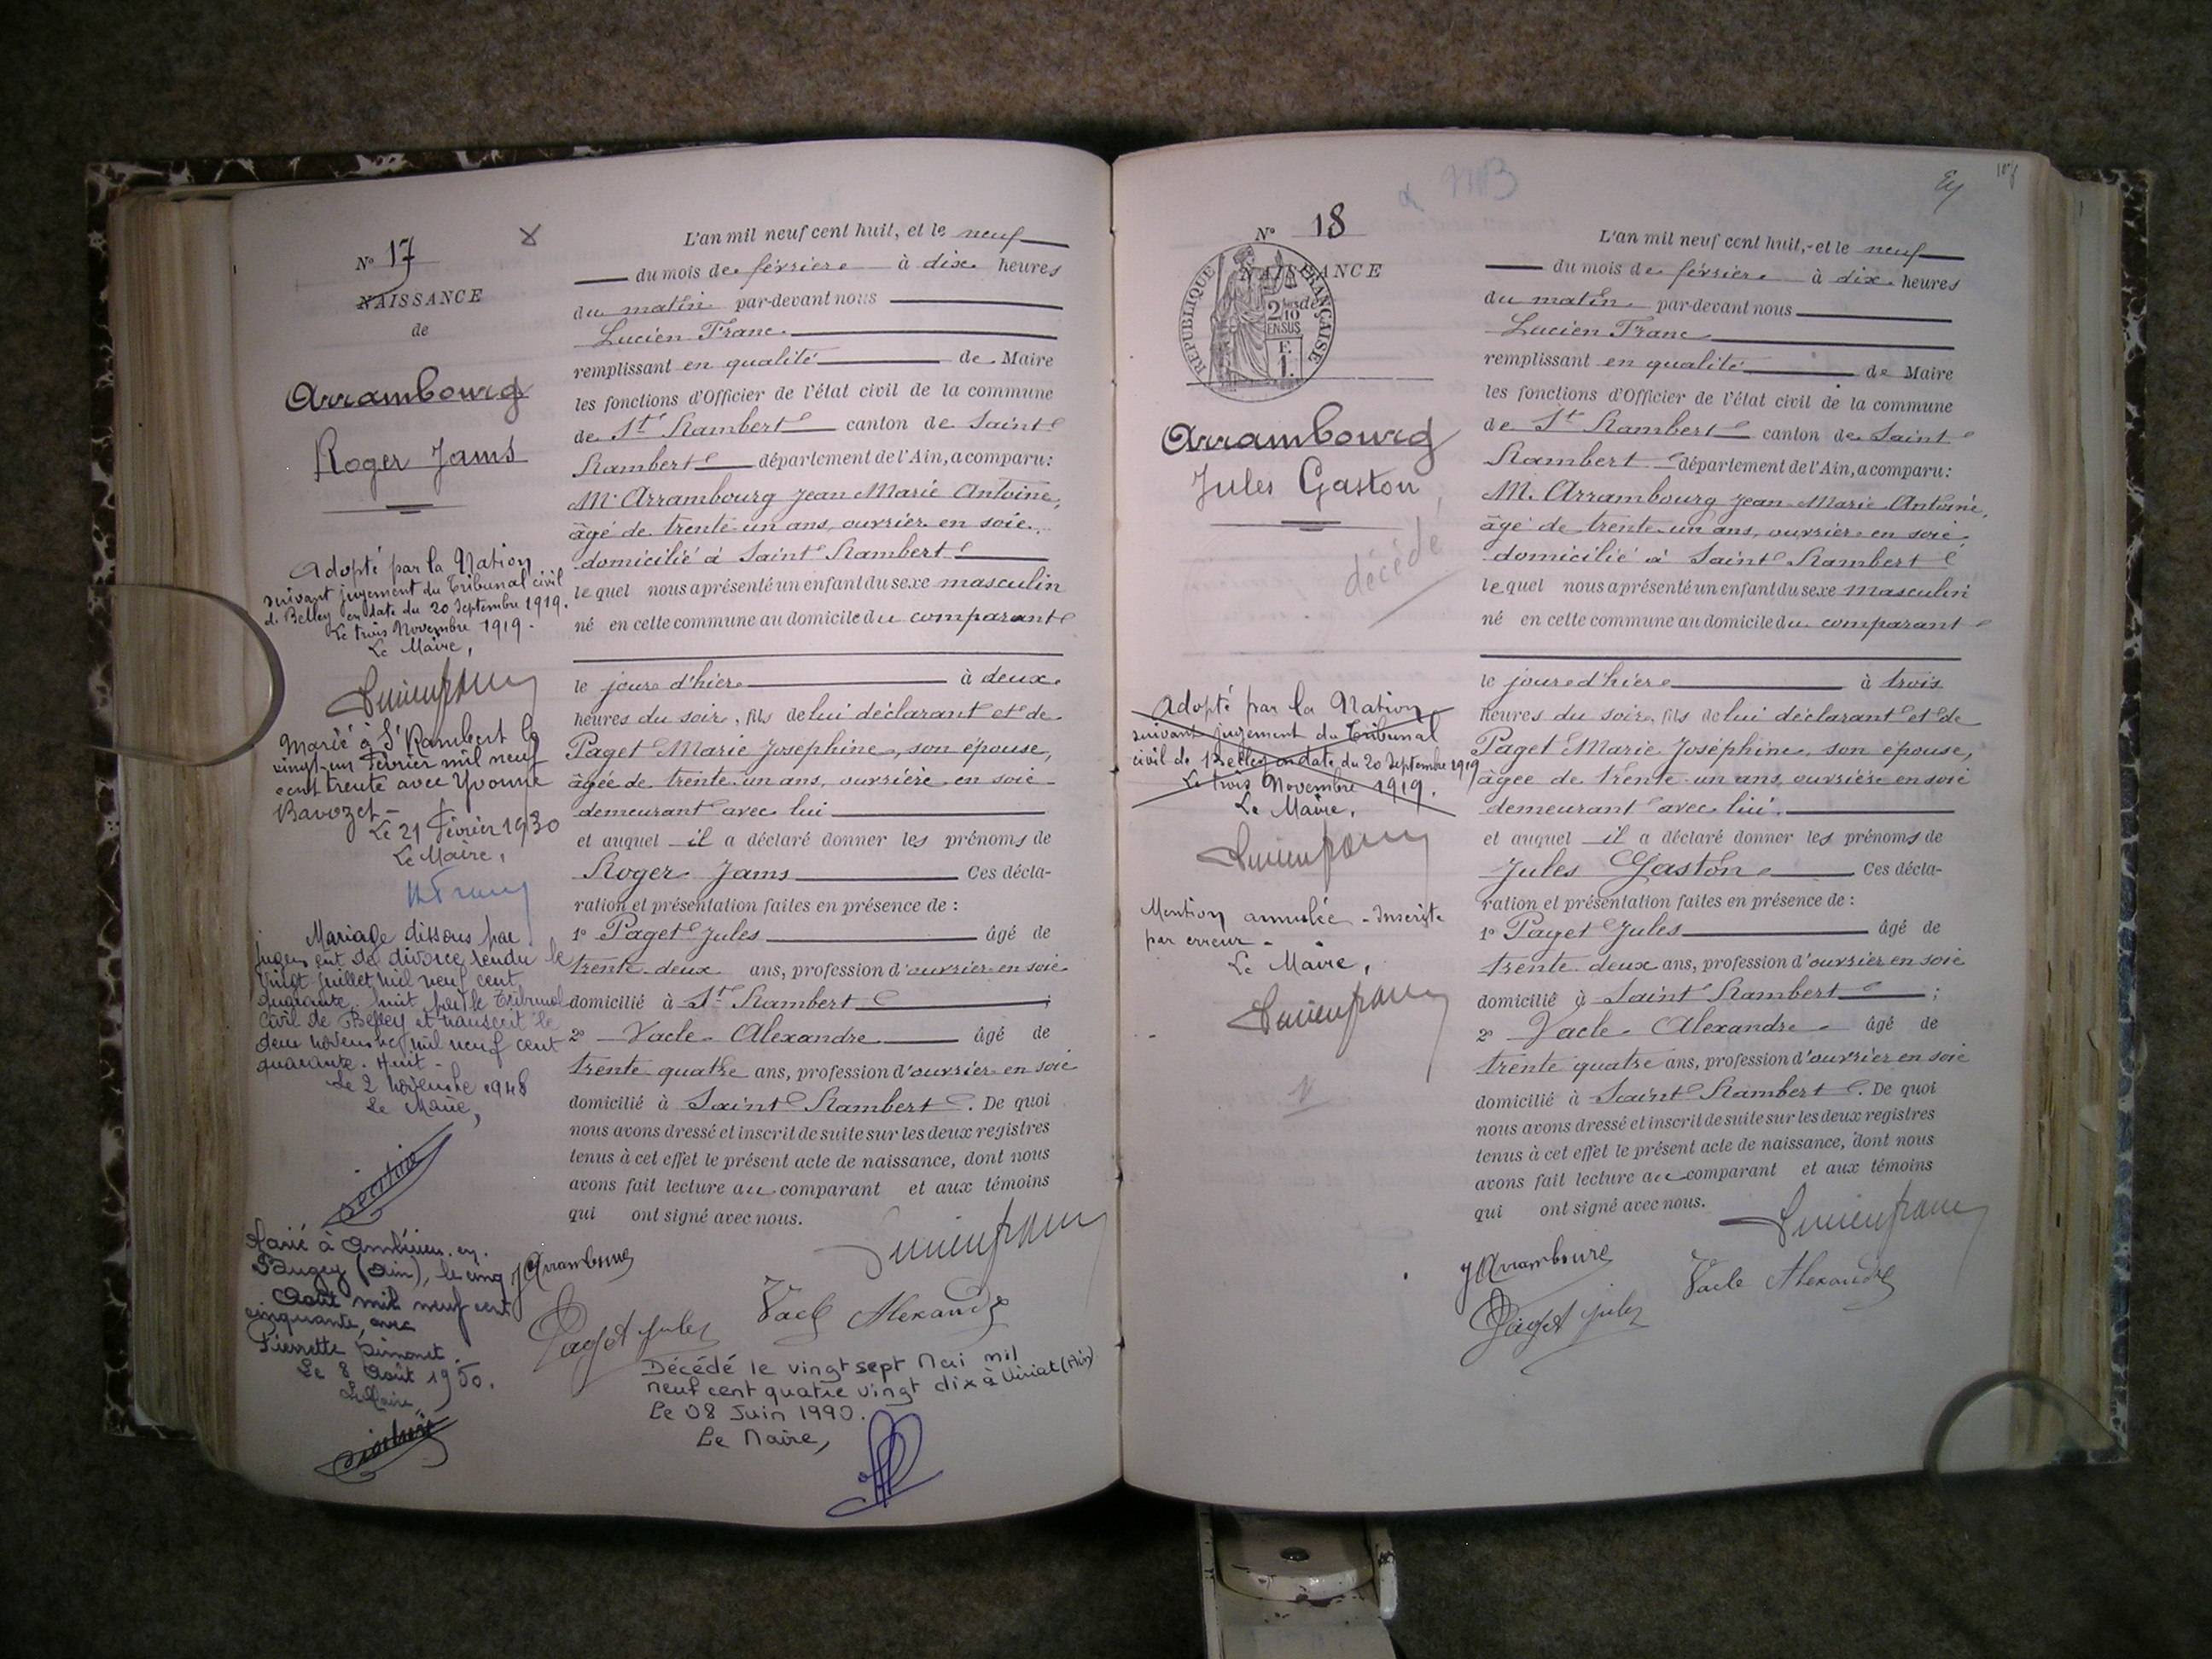 N° 17
NAISSANCE
de
Arrambourg
Roger Jams
Adopté par la Nation
suivant jugement du Tribunal civil
de Belley en date du 20 Septembre 1919.
Le trois Novembre 1919.
Le Maire,
Lucien franc
Marié à St Rambert le
vingt-un Février mil neuf
cent trente avec Yvonne
Bavozet -
Le 21 Février 1930
Le Maire,
Mariage dissous par
jugement de divorce rendu le
vingt juillet mil neuf cent
quarante huit par le Tribunal
Civil de Belley et transcrit le
deux novembre mil neuf cent
quarante. Huit -
Le 2 Novembre 1948
Le Maire,
Marié à Ambérieu. en.
Bugey (Ain), le cinq
Août mil neuf cent
cinquante, avec
Pierrette Simonet.
Le 8 Août 1950.
Le Maire,
L'an mil neuf cent huit, et le neuf
du mois de février à dix heures
du matin par-devant nous
Lucien Franc
remplissant en qualité de Maire
les fonctions d'Officier de l'état civil de la commune
de St Rambert canton de Saint
Rambert département de l'Ain, a comparu:
Mr Arrambourg Jean Marie Antoine,
âgé de trente-un ans, ouvrier en soie,
domicilié à Saint Rambert
lequel nous a présenté un enfant du sexe masculin
né en cette commune au domicile du comparant
le jour d'hier à deux
heures du soir, fils de lui déclarant et de
Paget Marie Joséphine, son épouse,
âgée de trente-un ans, ouvrière en soie
demeurant avec lui
et auquel il a déclaré donner les prénoms de
Roger Jams Ces décla-
ration et présentation faites en présence de :
1° Paget Jules âgé de
trente-deux ans, profession d'ouvrier en soie
domicilié à St Rambert ;
2° Vacle Alexandre âgé de
trente quatre ans, profession d'ouvrier en soie
domicilié à Saint Rambert. De quoi
nous avons dressé et inscrit de suite sur les deux registres
tenus à cet effet le présent acte de naissance, dont nous
avons fait lecture au comparant et aux témoins
qui ont signé avec nous.
Lucien franc
J Arrambourg
Paget Jules Vacle Alexandre
Décédé le vingt sept Mai mil
neuf cent quatre vingt dix à Viriat (Ain)
Le 08 Juin 1990.
Le Maire,
N° 18
NAISSANCE
de
RÉPUBLIQUE FRANÇAISE
2/10
EN SUS
F.
1.
Arrambourg
Jules Gaston
décédé
Adopté par la Nation
suivant jugement du Tribunal
civil de Belley en date du 20 Septembre 1919
Le trois Novembre 1919.
Le Maire,
Lucien franc
Mention annulée - Inscrite
par erreur -
Le Maire,
Lucien franc
L'an mil neuf cent huit, et le neuf
du mois de février à dix heures
du matin par-devant nous
Lucien Franc
remplissant en qualité de Maire
les fonctions d'Officier de l'état civil de la commune
de St Rambert canton de Saint
Rambert département de l'Ain, a comparu:
M. Arrambourg Jean Marie Antoine,
âgé de trente-un ans, ouvrier en soie
domicilié à Saint Rambert
lequel nous a présenté un enfant du sexe masculin
né en cette commune au domicile du comparant
le jour d'hier à trois
heures du soir, fils de lui déclarant et de
Paget Marie Joséphine, son épouse,
âgée de trente-un ans, ouvrière en soie
demeurant avec lui.
et auquel il a déclaré donner les prénoms de
Jules Gaston Ces décla-
ration et présentation faites en présence de :
1° Paget Jules âgé de
trente deux ans, profession d'ouvrier en soie
domicilié à Saint Rambert ;
2° Vacle Alexandre âgé de
trente quatre ans, profession d'ouvrier en soie
domicilié à Saint Rambert. De quoi
nous avons dressé et inscrit de suite sur les deux registres
tenus à cet effet le présent acte de naissance, dont nous
avons fait lecture au comparant et aux témoins
qui ont signé avec nous.
Lucien franc
J Arrambourg
Vacle Alexandre
Paget Jules